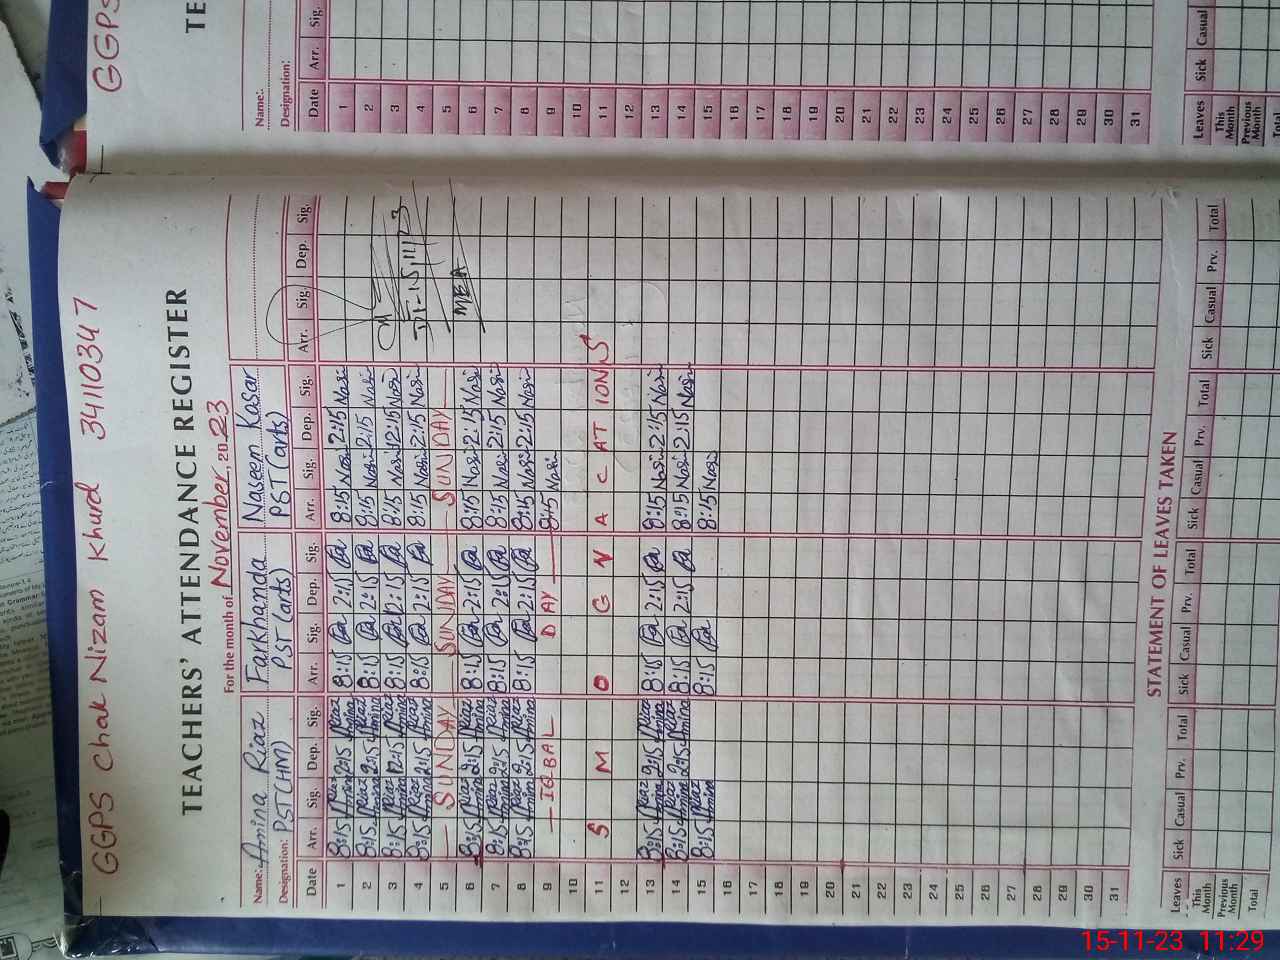 GGPS Chak Nizam Khurd 34110347
TEACHERS' ATTENDANCE REGISTER
For the month of November, 2023
Name: Amina Riaz Farkhanda Naseem Kosar
Designation: PST(HM) PST (arts) PST (arts)
Date Arr. Sig. Dep. Sig. Arr. Sig. Dep. Sig. Arr. Sig. Dep. Sig. Arr. Sig. Dep. Sig.
1 8:15 Amina Riaz 2:15 Amina Riaz 8:15 Fa 2:15 Fa 8:15 Nasi 2:15 Nasi
2 8:15 Amina Riaz 2:15 Amina Riaz 8:15 Fa 2:15 Fa 8:15 Nasi 2:15 Nasi
3 8:15 Amina Riaz 12:15 Amina Riaz 8:15 Fa 12:15 Fa 8:15 Nasi 12:15 Nasi
4 8:15 Amina Riaz 2:15 Amina Riaz 8:15 Fa 2:15 Fa 8:15 Nasi 2:15 Nasi
5 — SUNDAY — SUNDAY — SUNDAY —
6 8:15 Amina Riaz 2:15 Amina Riaz 8:15 Fa 2:15 Fa 8:15 Nasi 2:15 Nasi
7 8:15 Amina Riaz 2:15 Amina Riaz 8:15 Fa 2:15 Fa 8:15 Nasi 2:15 Nasi
8 8:15 Amina Riaz 2:15 Amina Riaz 8:15 Fa 2:15 Fa 8:15 Nasi 2:15 Nasi
9 — IQBAL DAY — 8:15 Nasi
10
11 S M O G V A C A T I O N S
12
13 8:15 Amina Riaz 2:15 Amina Riaz 8:15 Fa 2:15 Fa 8:15 Nasi 2:15 Nasi
14 8:15 Amina Riaz 2:15 Amina Riaz 8:15 Fa 2:15 Fa 8:15 Nasi 2:15 Nasi
15 8:15 Amina Riaz 8:15 Fa 8:15 Nasi
16
17
18
19
20
21
22
23
24
25
26
27
28
29
30
31
DT-15/11/23
MEA
STATEMENT OF LEAVES TAKEN
Leaves Sick Casual Prv. Total Sick Casual Prv. Total Sick Casual Prv. Total Sick Casual Prv. Total
This Month
Previous Month
Total
GGPS
TE
Name:
Designation:
Date Arr. Sig.
1
2
3
4
5
6
7
8
9
10
11
12
13
14
15
16
17
18
19
20
21
22
23
24
25
26
27
28
29
30
31
Leaves Sick Casual
This Month
Previous Month
Total
15-11-23 11:29